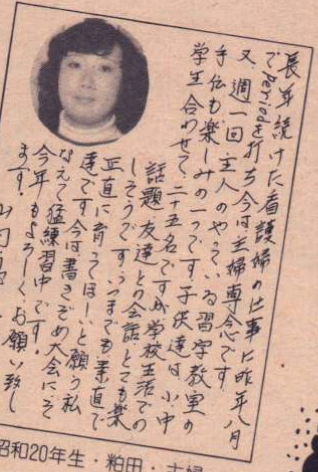 長年続けた看護婦の仕事に昨年八月
でPeriodを打ち今は主婦専念です。
又、週一回主人のやっている習字教室の
手伝も楽しみの一つです。子供達は小中
学生合わせて二十五名ですが学校生活での
話題、友達との会話、とても楽
しそうです。いつまでも素直で
正直に育ってほしいと願う私
達です。今は書きぞめ大会にそ
なえて猛練習中です。
今年もよろしくお願い致し
ます。
昭和20年生・粕田・主婦